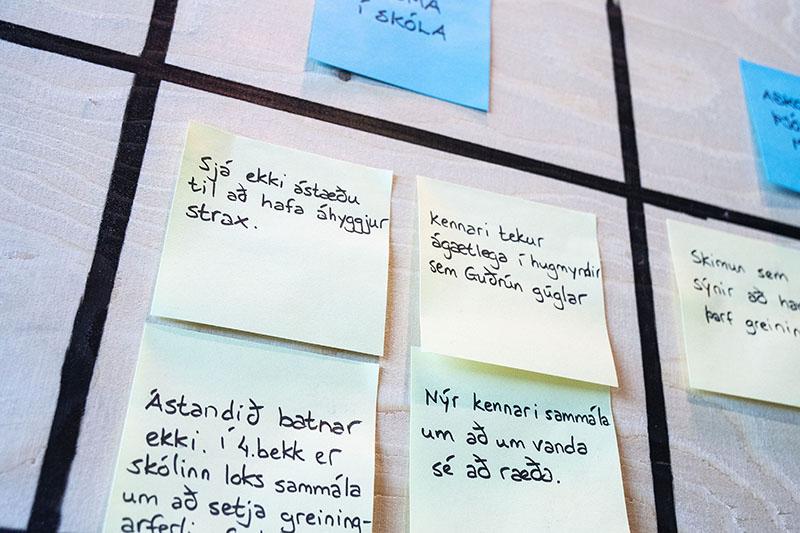 Í SKÓLA
Sjá ekki ástæðu
til að hafa áhyggjur
strax.
kennari tekur
ágætlega í hugmyndir
sem Guðrún gúglar
Skimun sem
sýnir að
þarf greinin
Ástandið batnar
ekki. Í 4.bekk er
skólinn loks sammála
um að setja greining-
Nýr kennari sammála
um að um vanda
sé að ræða.